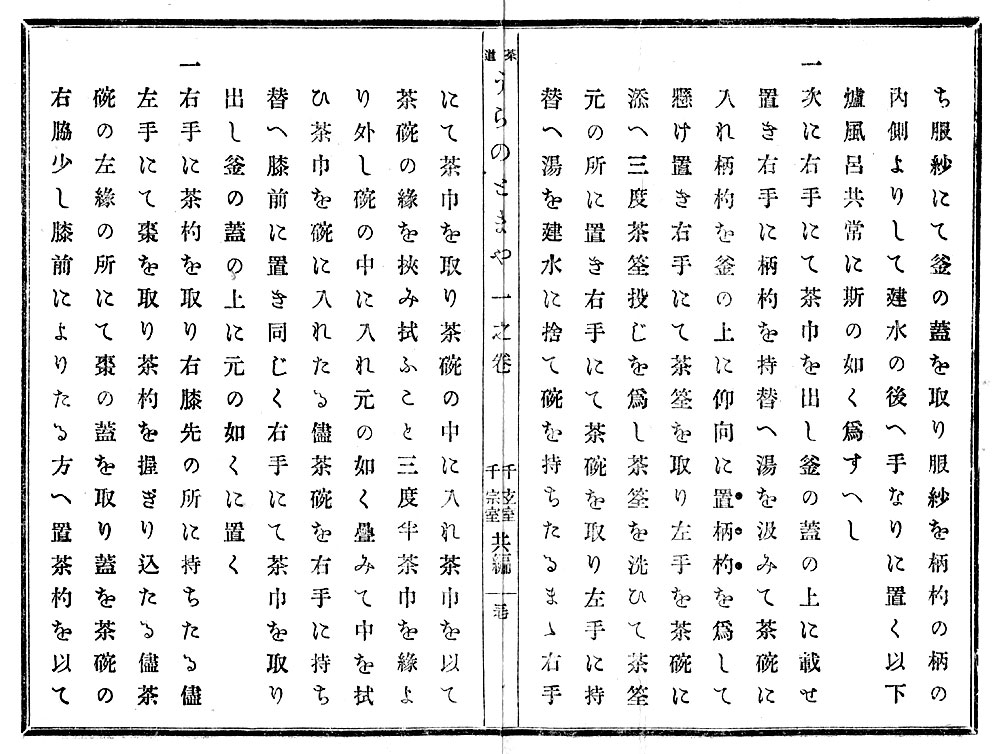 ち服紗にて釜の蓋を取り服紗を柄杓の柄の
內側よりして建水の後へ手なりに置く以下
爐風呂共常に斯の如く爲すへし
一次に右手にて茶巾を出し釜の蓋の上に載せ
置き右手に柄杓を持替へ湯を汲みて茶碗に
入れ柄杓を釜の上に仰向に置柄杓を爲して
懸け置き右手にて茶筌を取り左手を茶碗に
添へ三度茶筌投じを爲し茶筌を洗ひて茶筌
元の所に置き右手にて茶碗を取り左手に持
替へ湯を建水に捨て碗を持ちたるまゝ右手
茶道うらのとまや 一之卷
千宗室 共編
にて茶巾を取り茶碗の中に入れ茶巾を以て
茶碗の緣を挾み拭ふこと三度半茶巾を緣よ
り外し碗の中に入れ元の如く疊みて中を拭
ひ茶巾を碗に入れたる儘茶碗を右手に持ち
替へ膝前に置き同じく右手にて茶巾を取り
出し釜の蓋の上に元の如くに置く
一右手に茶杓を取り右膝先の所に持ちたる儘
左手にて棗を取り茶杓を握ぎり込たる儘茶
碗の左緣の所にて棗の蓋を取り蓋を茶碗の
右脇少し膝前によりたる方へ置茶杓を以て